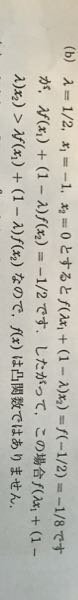 (b) λ = 1/2, x₁ = −1, x₂ = 0 とすると f(λx₁ + (1 − λ)x₂) = f(−1/2) = −1/8 です
が, λf(x₁) + (1 − λ)f(x₂) = −1/2 です. したがって, この場合 f(λx₁ + (1 −
λ)x₂) > λf(x₁) + (1 − λ)f(x₂) なので, f(x) は凸関数ではありません.